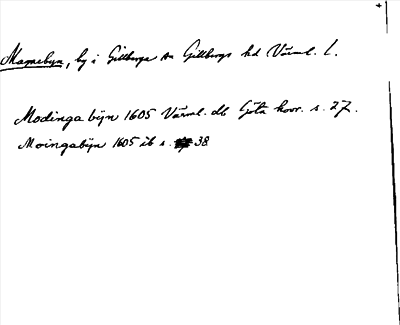 Mamebyn, by i Gillberga sn Gillbergs hd Värml. l.
Modinga bÿn 1605 Värml. db Göta hovr. s. 27.
Moingabÿn 1605 ib s. 38